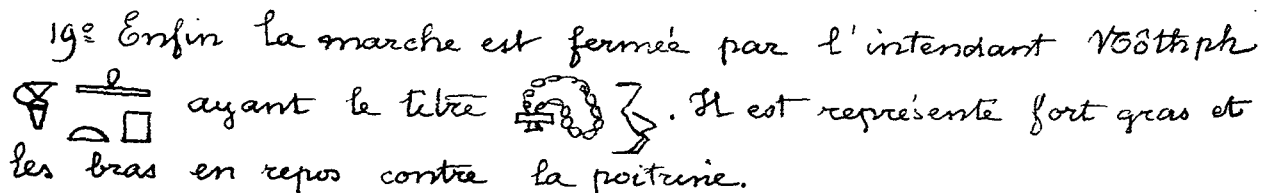 19º Enfin la marche est fermée par l'intendant
ayant le titre . Il est représenté fort gras et
les bras en repos contre la poitrine.